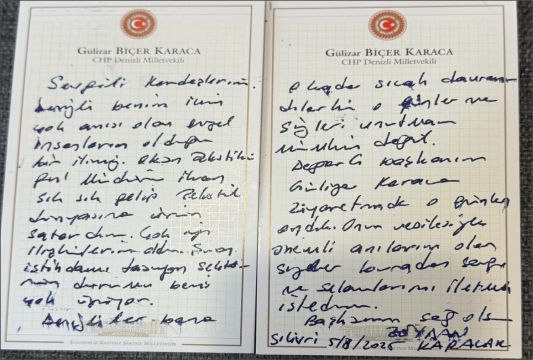 Gülizar BİÇER KARACA
CHP Denizli Milletvekili
Sevgili Kardeşlerim.
Denizli benim için
çok anısı olan güzel
insanların olduğu
bir ilimiz.
sık sık gelip tekstil
dünyasına ürün
satardım. Çok iyi
ilişkilerim oldu.
istihdamı taşıyan sektö-
rün durumu beni
çok üzüyor.
Denizliler bana
EKONOMİK KALKINMA
Gülizar BİÇER KARACA
CHP Denizli Milletvekili
o kadar sıcak davran-
dılar ki o günler ve
sizleri unutmam
mümkün değil.
Değerli başkanım
Gülizar Karaca
ziyaretinde o günleri
andık. Onun vesilesiyle
önemli anılarım olan
sizlere buradan sevgi
ve selamlarımı iletmek
istedim.
Başkanım sağ olsun
Silivri 5/8/2025